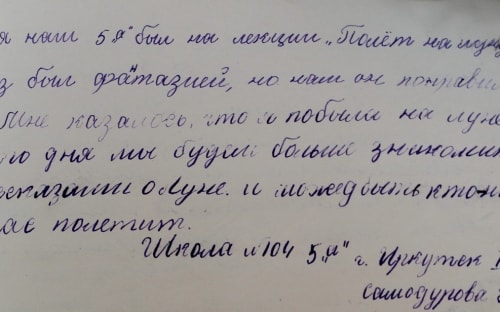 я наш 5 „Я" был на лекции „Полёт на
з был фантазией, но нам он понравил
Мне казалось, что я побыла на луне
го дня мы будем больше знакомит
о Луне. и может быть кто-ни
нас полетит.
Школа № 104 5 „Я" г. Иркутск
Самодурова